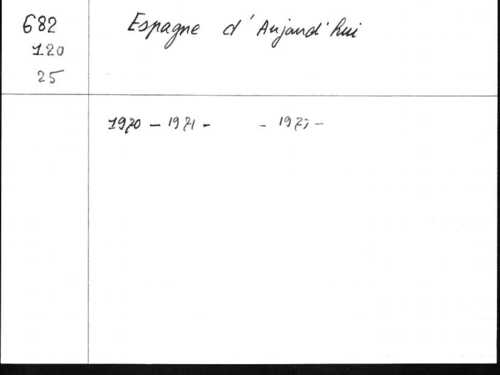 682
120
25
Espagne d'Aujourd'hui
1970 - 1971 - - 1973 -